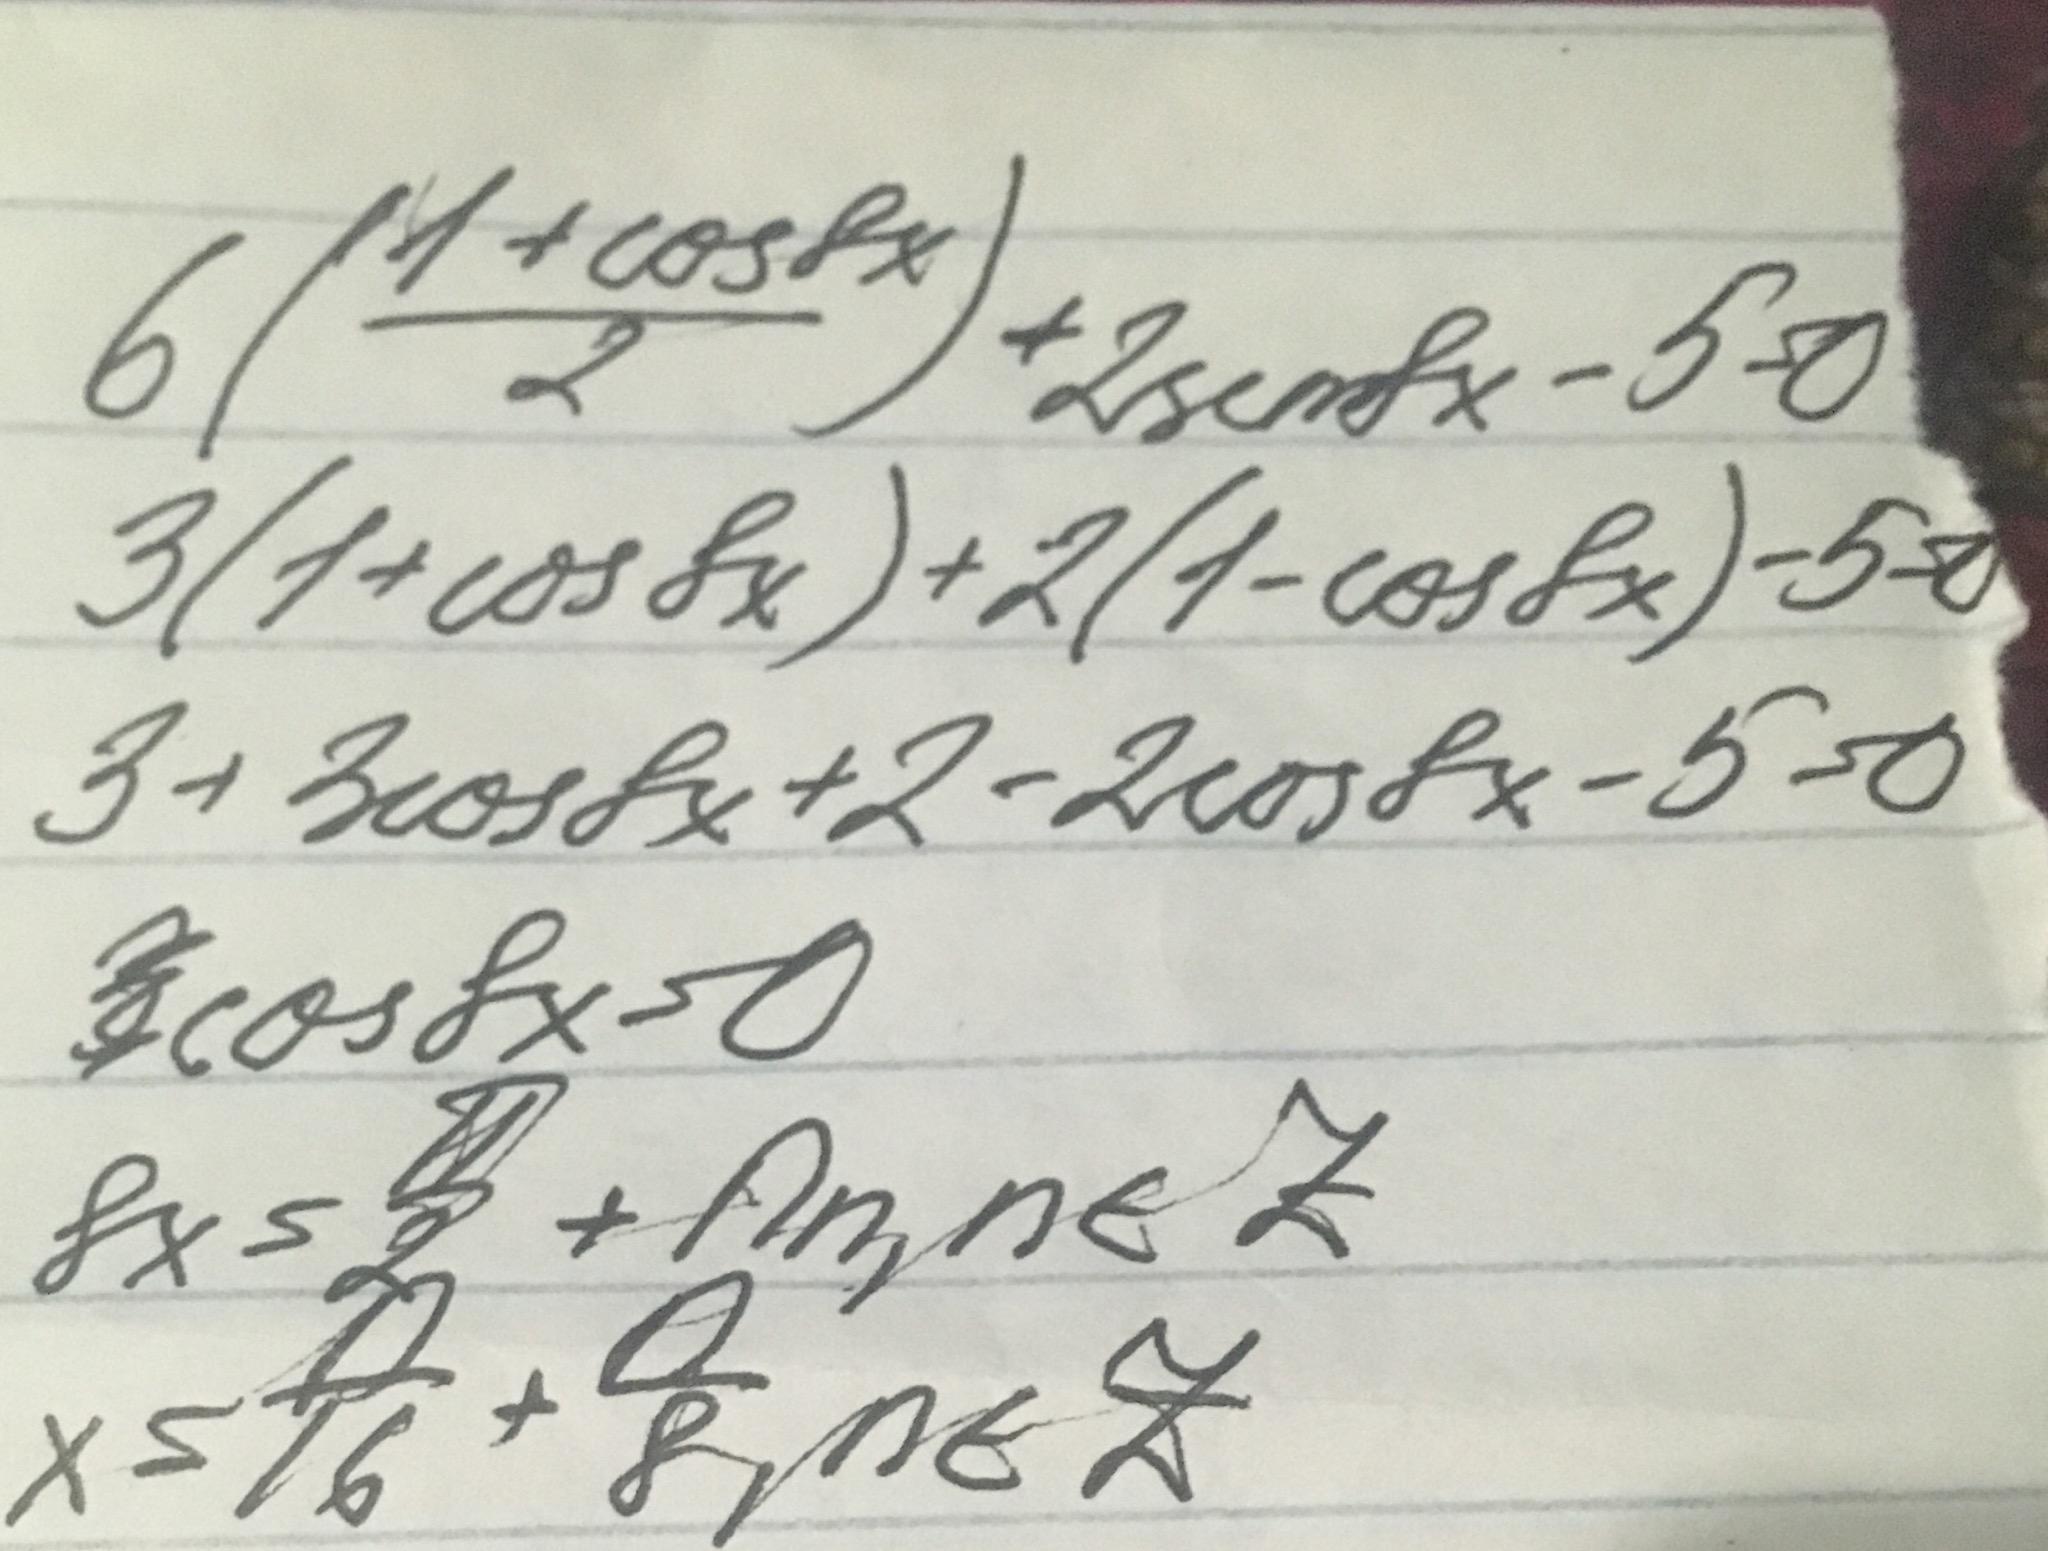 6((1+cos8x)/2)+2sin8x-5=0
3(1+cos8x)+2(1-cos8x)-5=0
3+3cos8x+2-2cos8x-5=0
cos8x=0
8x=π/2+πn, n∈Z
x=π/16+π/8, n∈Z